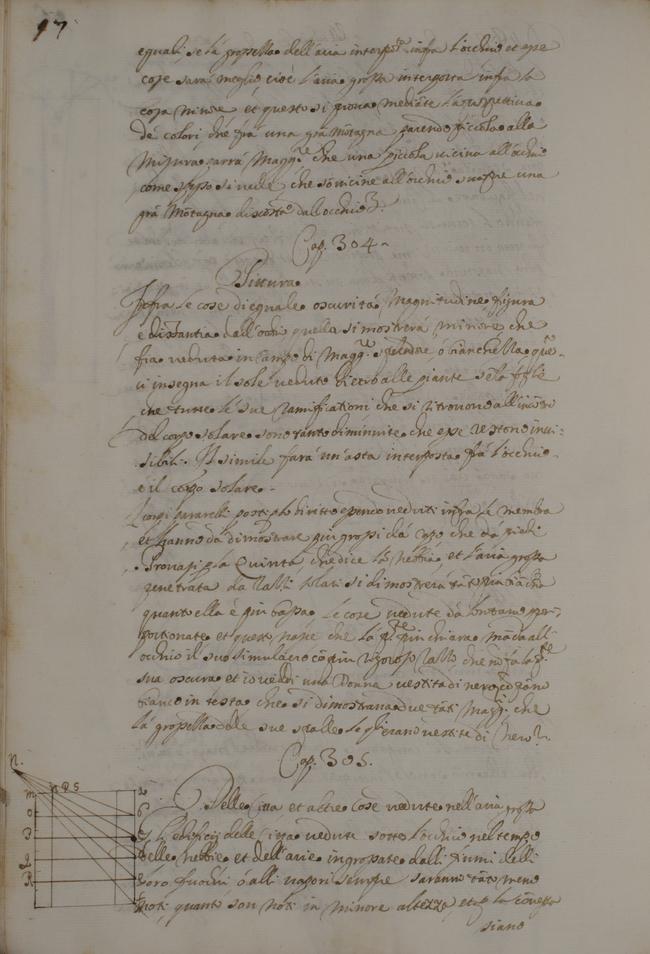 97
equali, se la grossezza dell'aria interp.ta infra l'occhio et esse
cose sarà meglio cioè l'aria grossa interposta infra la
cosa minore et questo si prova mediāte la prospettiva
de colori che fà una grā mōtagna parendo piccola alla
misura parrà magg.re che una piccola vicina all'occhio
come spesso si vede che vicine all'occhio una
grā mōtagna discosta dal occhio.
Cap. 304
Pittura
Infra le cose di eguale oscurità, magnitudine figura
e distantia dall'occhio quella si mostrerà minore che
fia veduta in campo di magg.re splendore ò bianchezza que-
insegna il sole veduto dietro alle piante sēza foglie
che tutte le sue ramificationi che si ritrovono all'incōtro
del corpo solare sono tanto diminuite che esse restono invi-
sibili. Il simile farà un'asta interposta frà l'occhio
e il corpo solare.
Corpi paralelli posti p lo diritto essendo veduti infra la nebbia
et hanno da dimostrare piu grossi da capo che da piedi
Provasi p la quinta che dice la nebbia, et l'aria grossa
penetrata da razzi solari si dimostrerà tāto piu biāca
quanto ella è piu bassa. Le cose vedute da lontano spro-
portionate et questo nasce che la p.te piu chiara māda all'
occhio il suo simulacro cō piu vigoroso razzo che nō fa la p.te
sua oscura et io veddi una Donna vestita di nero cō pāno
bianco in testa che si dimostrava due tāti magg.re che
la grossezza delle sue spalle le quali erano vestite di nero.
Cap. 305.
Delle Città et altre cose vedute nell'aria grossa
Li edificij delle Città vedute sotto l'occhio nel tempo
delle nebbie et dell'arie ingrossate dalli fumi delli
loro fuochi ò altri vapori sempre saranno tāto meno
noti quanto son noti in minore altezza, et
siano
n.
m
o